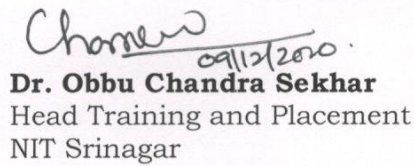 09/12/2020.
Dr. Obbu Chandra Sekhar
Head Training and Placement
NIT Srinagar